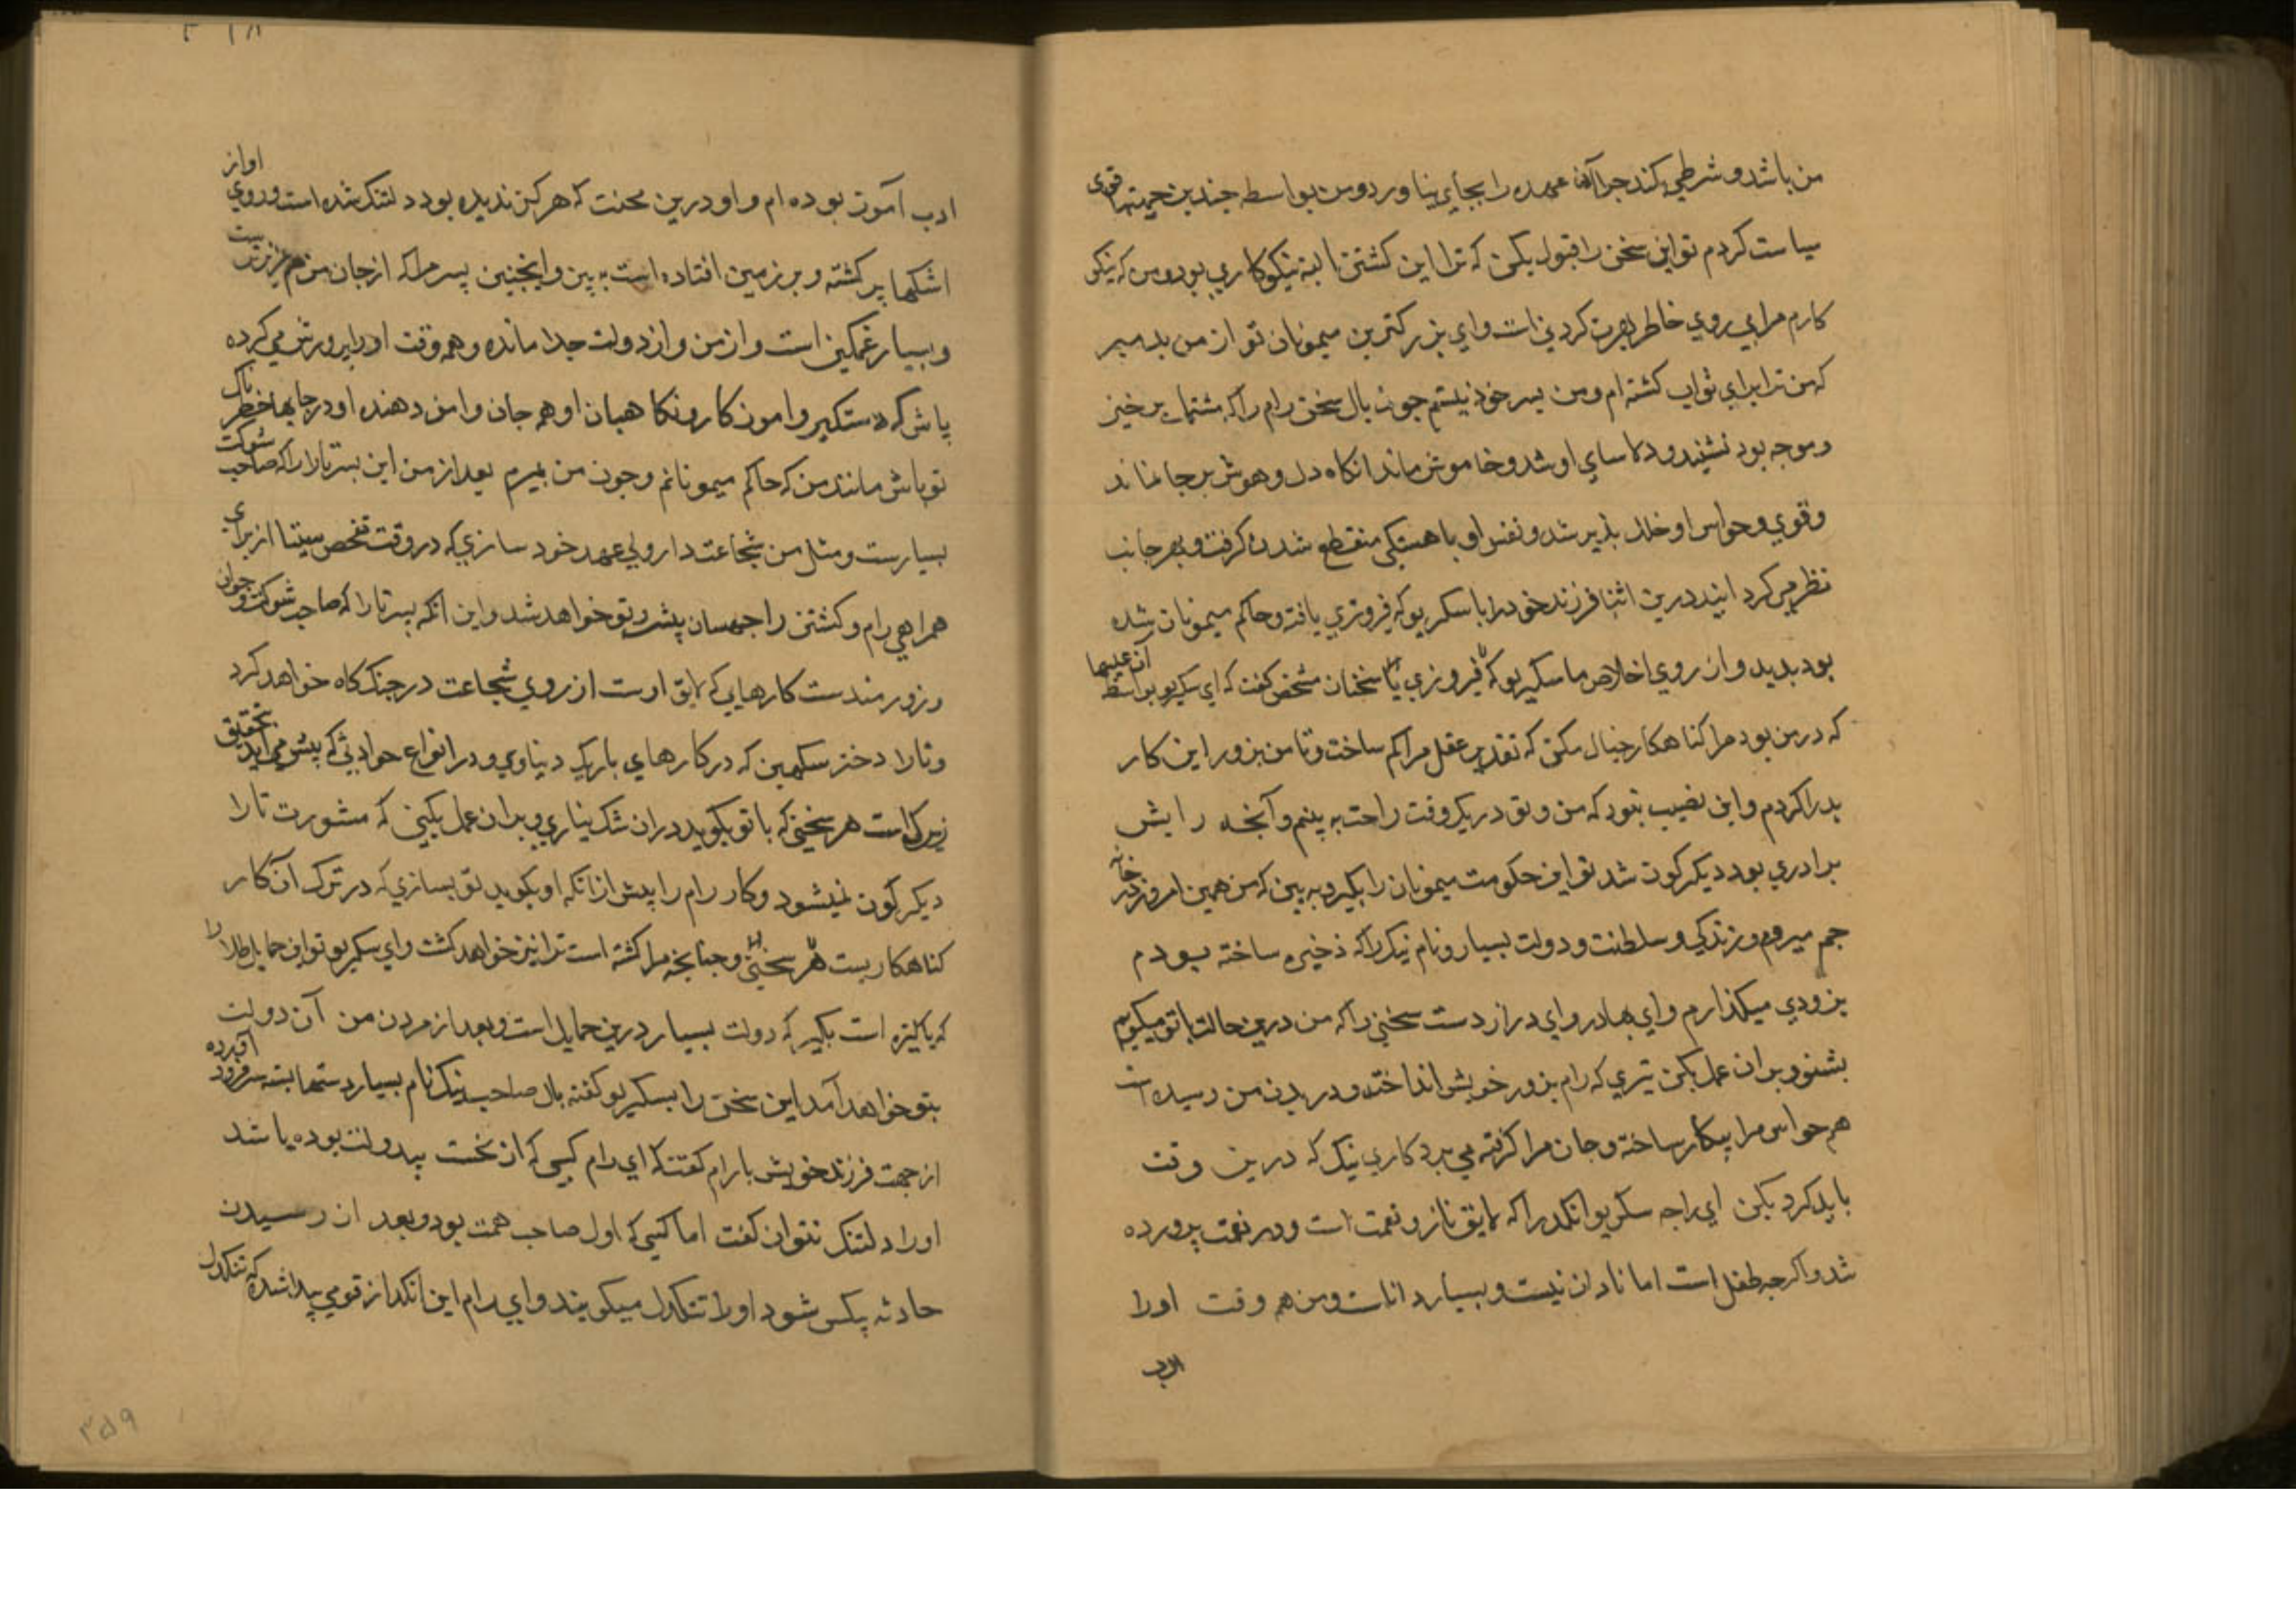 من باشد و شرطي بکند چرا آن عهده را بجاي نياورد و من بواسطه چندين جهتها قوي
سياست کردم تو اين سخن را قبول بکن که ترا اين کشتن البته نيکوکاري بود و من که نيکي
کارم مرا بي روي خاطر بهرت کردني است واي بزرکترين ميمونان تو از من بد مبر
که من ترا براي ثواب کشته ام و من بسر خود نيستم چون بال سخن رام را که مشتمل بر خير
و موجه بود نشنيد و دلاساي او شد و خاموش ماند انکاه دل و هوش بر جا نماند
و قوي و حواس او خلل پذير شد و نفس او باهستکي منقطع شدن کرفت و بهر جانب
نظر مي کرد ايند درين اثنا فرزند خود را با سکريو که فيروزي يافته و حاکم ميمونان شده
بود بديد و از روي اخلاص با سکريو که فيروزي با سخنان مشخص کفت که اي سکريو بواسطه آن عليها
که در من بود مرا کناهکار خيال مکن که تقدير عقل مرا کم ساخت و تا من بزور اين کار
بد را کردم و اين نصيب نبود که من و تو در يک وقت راحت به بينم و آنچه رابش
برادري بود ديکر کون شد تو اين حکومت ميمونان را بکير و به بين که من همين امروز در خانه
جم ميروم و زندکي و سلطنت و دولت بسيار و نام نيک را که ذخيره ساخته بودم
بزودي ميکذارم و اي بهادر و اي دراز دست سخني را که من درين حالت با تو ميکويم
بشنو و بران عمل بکن تيري که رام بزور خويش انداخته و در بدن من رسيده است
هم حواس مرا بيکار ساخته و جان مرا کرفته مي برد کاري نيک که درين وقت
بايد کرد بکن اي راجه سکريو انکد را که لايق ناز و نعمت است و در نعمت پرورده
شد و اکرچه طفل است اما نادان نيست و بسيار داناست و من همه وقت اورا
ادب
ادب آموز بوده ام و او درين محنت که هرکز نديده بود دلتنک شده است و روي او از
اشکها پر کشته و بر زمين افتاده است به بين و اينچنين پسر مرا که از جان من هم عزيزتر ست
و بسيار غمکين است و از من و از دولت جدا مانده و همه وقت او را پرورش مي کرده
باش که دستکير و امون کار و نکاهبان او همه جان و امن دهنده او در جايها خطرناک
تو باش مانند من که حاکم ميمونانم و چون من بميرم بعد از من اين پسر تارا را که صاحب شوکت
بسيارست و مثل من شجاعت دارد ولي عهد خود سازي که در وقت تفحص سيتا از براي
همراهي رام و کشتن راچهسان پيش رو تو خواهد شد و اين انکد پسر تارا که صاحب شوکت و جوان
و زورمندست کارهايي که لايق اوست از روي شجاعت در جنک کاه خواهد کرد
و تارا دختر سکهين که در کارهاي باريک دنياوي و در انواع حوادثي که پيش مي ايد بتحقيق
زيرک است هر سخني که با تو بکويد دران شک نياري و بران عمل بکني که مشورت تارا
ديکر کون نميشود و کار رام را پيش از انکه او بکويد تو بسازي که در ترک آن کار
کناهکاريست هر سخني و چنانچه مرا کشته است ترا نيز خواهد کشت و اي سکريو تو اين حمايل طلا را
که پاکيزه است بکير که دولت بسيار درين حمايل است و بعد از مردن من آن دولت
بتو خواهد آمد اين سخن را بسکريو کفته بال صاحب نيک نام بسيار دستها بسته سر فرود آورده
از جهت فرزند خويش با رام کفت که اي رام کسي که از نخست بيدولت بوده باشد
او را دلتنک نتوان کفت اما کسي که اول صاحب همت بود و بعد از رسيدن
حادثه بيکس شود او را تنکدل ميکويند و اي رام اين انکد از قومي پيدا شده که تنکدل
۳۵۹